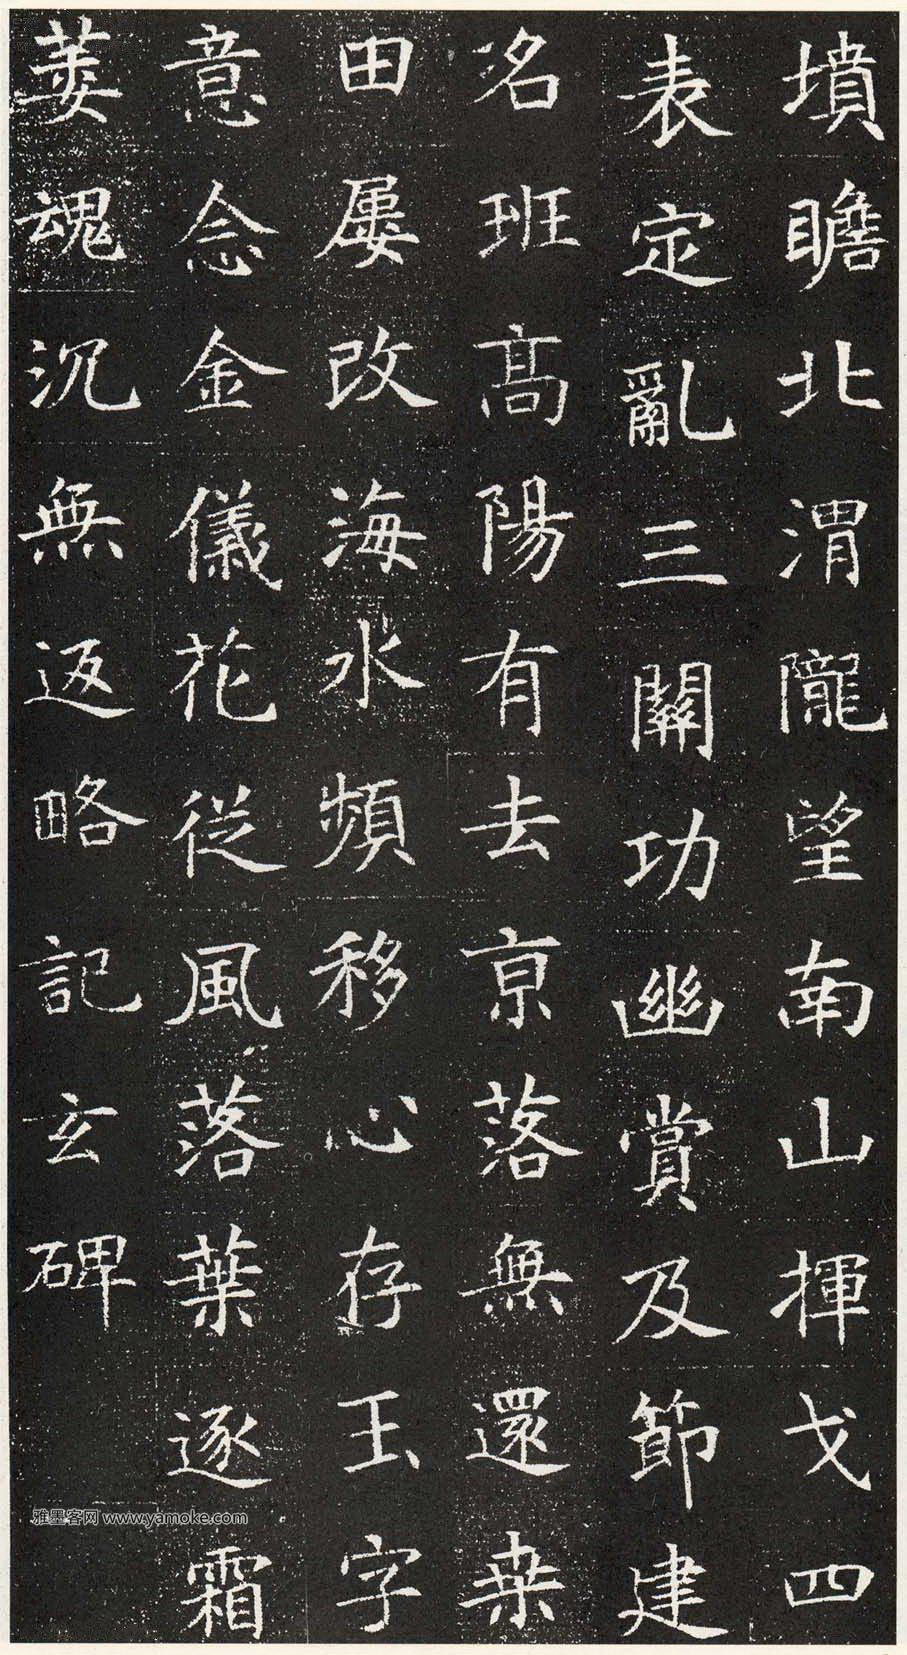 墳瞻北渭隴望南山揮戈四
表定亂三關功幽賞及節建
洺班高陽有去京落無還桒
田屢改海水頻移心存玉字
意念金儀花從風落葉逐霜
萎魂沉無返略記玄碑
雅墨客网 www.yamoke.com